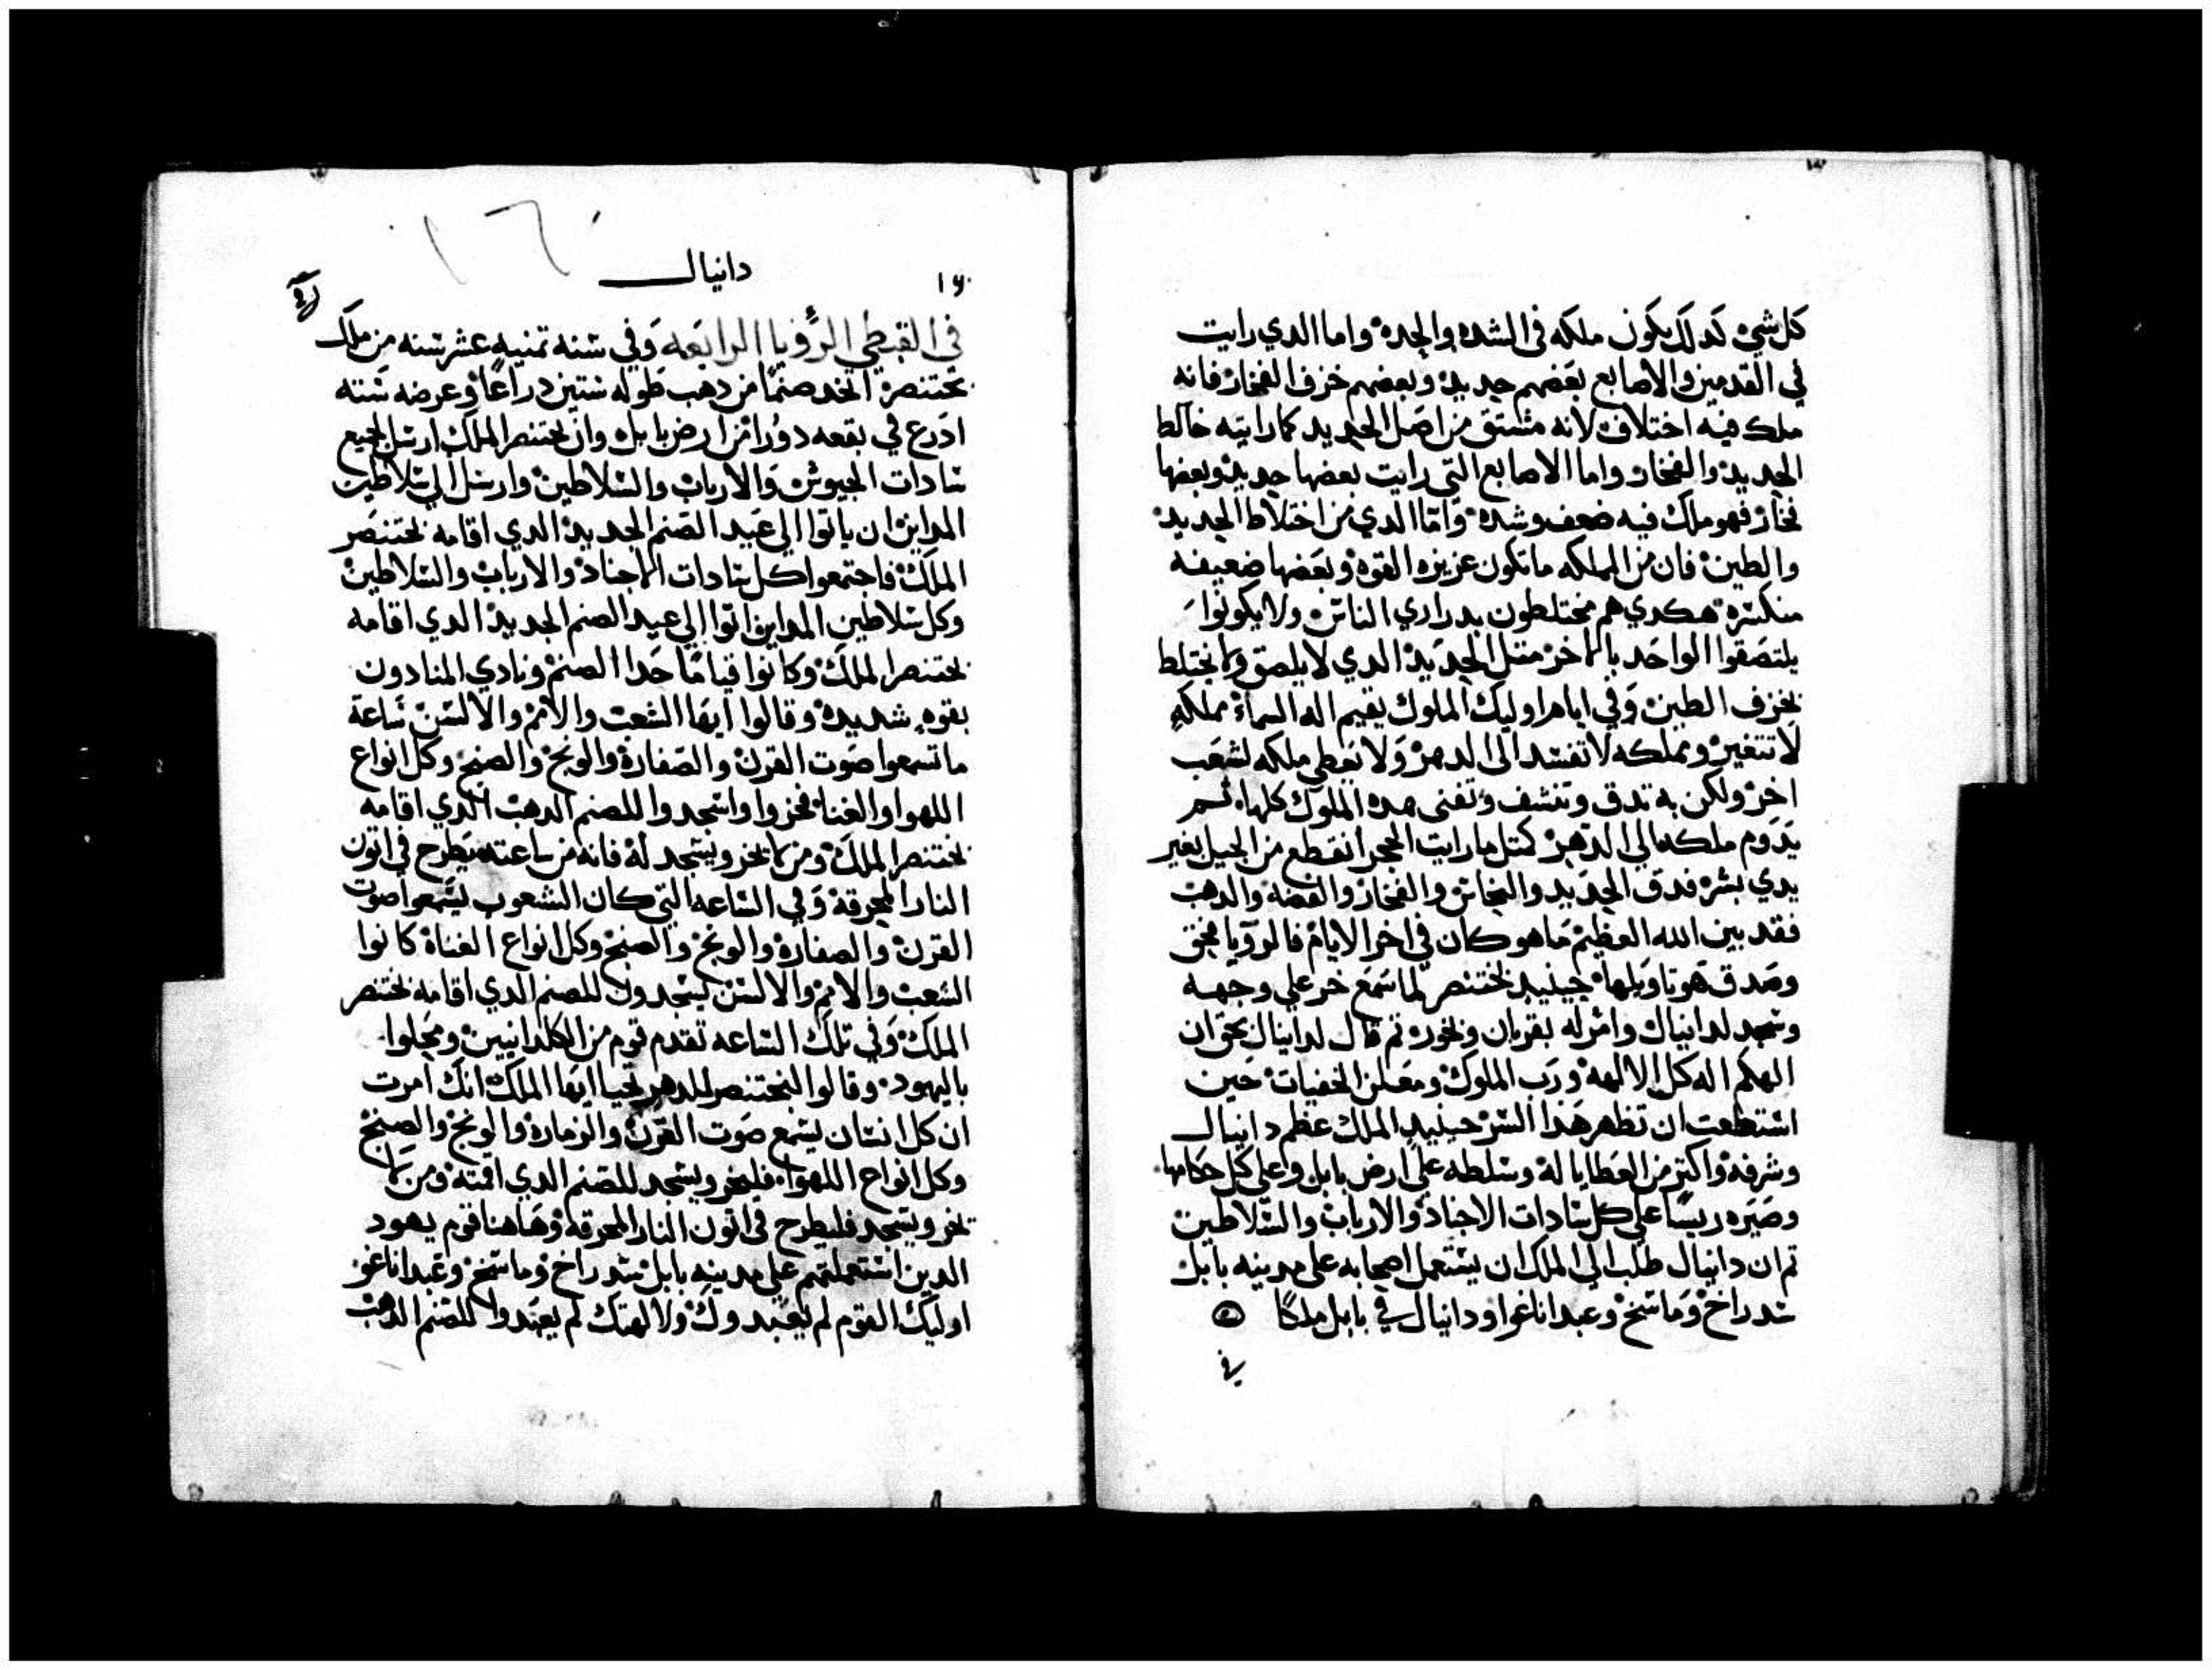 كل شيء كدلك يكون ملكه في الشده والجده واما الدي رايت
في القدمين والاصابع بعضهم حديد وبعضهم خزف الفخار فانه
ملك فيه اختلاف لانه مشتق من اصل الحديد كما رايته خالط
الحديد والفخار واما الاصابع التي رايت بعضها حديد وبعضها
فخار فهو ملك فيه ضعف وشده واما الدي من اختلاط الحديد
والطين فان من المملكه ما تكون عزيزه القوه وبعضها ضعيفه
منكسره هكدي هم مختلطون بدراري الناس ولا يكونوا
يلتصقوا الواحد بالاخر متل الحديد الدي لا يلصق ولا يختلط
بخزف الطين وفي ايام اوليك الملوك يقيم اله السماء مملكه
لا تتغير ومملكه لا تفسد الى الدهر ولا يعطي ملكه لشعب
اخر ولكن به تدق وتنشف وتفنى هده الملوك كلها ثم
يدوم ملكه الي الدهر كمتل ما رايت الحجر انقطع من الجبل بغير
يدي بشر فدق الحديد والنحاس والفخار والفضه والدهب
فقد بين الله العظيم ما هو كان في اخر الايام فالرويا بحق
وصدق هو تاويلها حينيد بختنصر لما سمع خر علي وجهه
وسجد لدانيال وامر له بقربان وبخور تم قال لدانيال بحق ان
الهكم اله كل الالهه ورب الملوك ومعلن الخفيات حين
استطعت ان تظهر هذا السر حينيد الملك عظم دانيال
وشرفه واكتر من العطايا له وسلطه علي ارض بابل وعلي كل حكامها
وصيره ريسا علي كل سادات الاجناد والارباب والسلاطين
تم ان دانيال طلب الي الملك ان يستعمل اصحابه على مدينه بابل
سدراخ وماسخ وعبداناغوا ودانيال في بابل ملكا
في
دانيال
١٦
في القبطي الرؤيا الرابعه وفي سنه تمنيه عشر سنه من ملك
بختنصر اتخد صنما من دهب طوله ستين دراعا وعرضه سته
ادرع في بقعه دورا من ارض بابل وان بختنصر الملك ارسل لجميع
سادات الجيوش والارباب والسلاطين وارسل الي سلاطين
المداين ان ياتوا الي عيد الصنم الجديد الدي اقامه بختنصر
الملك فاجتمعوا كل سادات الاجناد والارباب والسلاطين
وكل سلاطين المداين اتوا الي عيد الصنم الجديد الدي اقامه
بختنصر الملك وكانوا قياما حدا الصنم ونادي المنادون
بقوه شديده وقالوا ايها الشعب والامم والالسن ساعة
ما تسمعوا صوت القرن والصفارة والونج والصنج وكل انواع
اللهوا والغناء فخروا واسجدوا للصنم الدهب الدي اقامه
بختنصر الملك ومن لا يخر ويسجد له فانه من ساعته يطرح في اتون
النار المحرقة وفي الساعه التي كان الشعوب يسمعوا صوت
القرن والصفاره والونج والصنج وكل انواع الغناة كانوا
الشعب والامم والالسن يسجدون للصنم الدي اقامه بختنصر
الملك وفي تلك الساعه تقدم قوم من الكلدانيين ومحلوا
باليهود وقالوا لبختنصر للدهر تحيا ايها الملك انك امرت
ان كل انسان يسمع صوت القرن والزماره والونج والصنج
وكل انواع اللهوا فليخر ويسجد للصنم الدي اقمته ومن لا
يخر ويسجد فليطرح في اتون النار المحرقه وهاهنا قوم يهود
الدين استعملتهم علي مدينه بابل سدراخ وماسخ وعبداناغو
اوليك القوم لم يعبدوك ولا لهتك لم يعبدوا للصنم الدهب